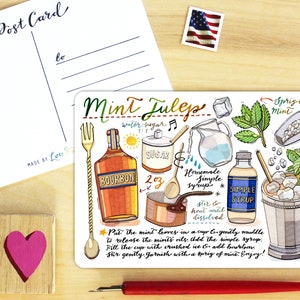 Post Card
to
MADE BY
Mint Julep
water + sugar
SUGAR
BOURBON
2 oz
Homemade
simple
syrup
stir &
heat until
dissolved
SIMPLE
SYRUP
Sprig
Mint
Put the mint leaves in a cup & gently muddle
to release the mint's oils. Add the simple syrup.
Fill the cup with crushed ice & add bourbon.
Stir gently. Garnish with a sprig of mint. Enjoy!